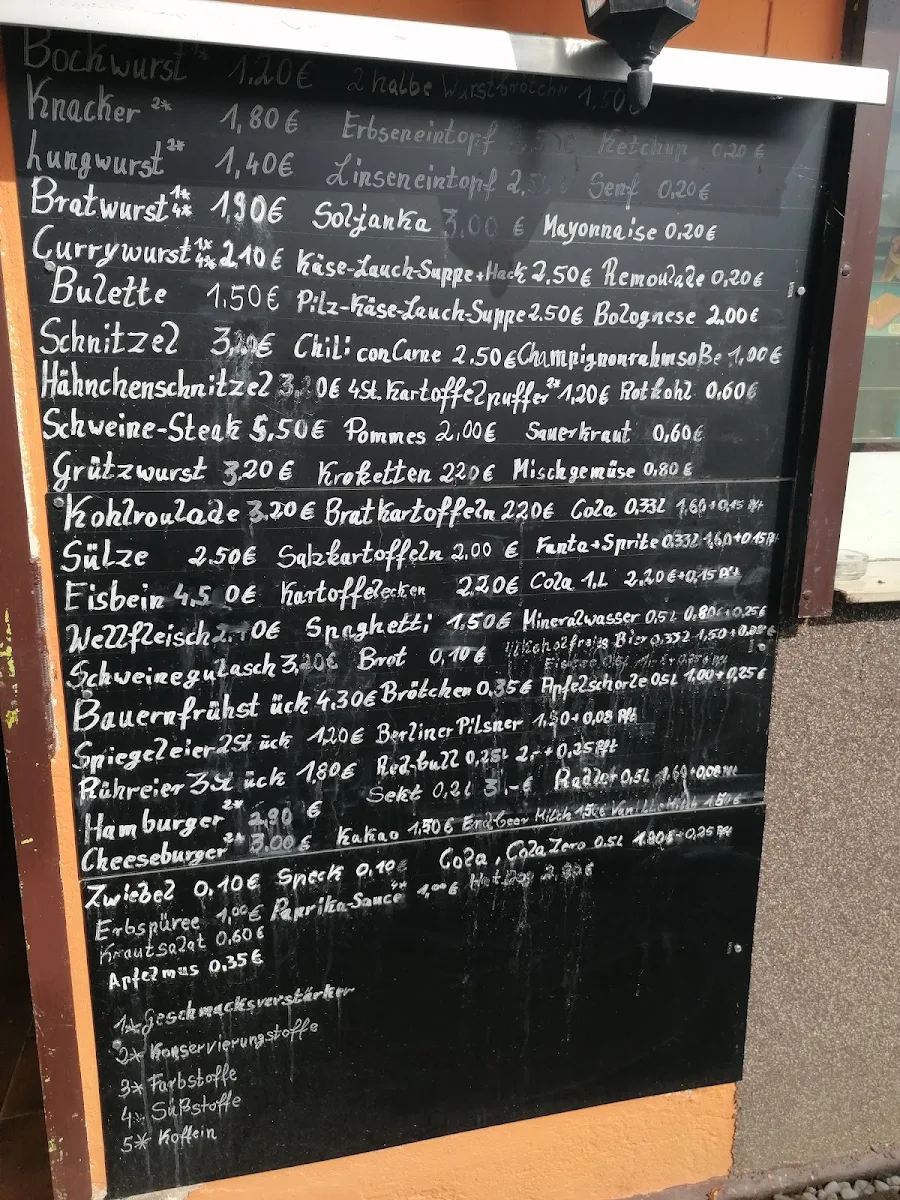 Bockwurst 1* 1,20€ 2 halbe Wurstbrötchen 1,50
Knacker 2* 1,80€ Erbseneintopf Ketchup 0,20€
Lungwurst 2* 1,40€ Linseneintopf 2,50 Senf 0,20€
Bratwurst 1* 4* 1,90€ Soljanka 3,00 € Mayonnaise 0,20€
Currywurst 1* 4* 2,10€ Käse-Lauch-Suppe+Hack 2,50€ Remoulade 0,20€
Bulette 1,50€ Pilz-Käse-Lauch-Suppe 2,50€ Bolognese 2,00€
Schnitzel Chili con Carne 2,50€ Champignonrahmsoße 1,00€
Hähnchenschnitzel 4St. Kartoffelpuffer 2* 1,20€ Rotkohl 0,60€
Schweine-Steak 5,50€ Pommes 2,00€ Sauerkraut 0,60€
Grützwurst 3,20€ Kroketten 2,20€ Mischgemüse 0,80€
Kohlroulade 3,20€ Bratkartoffeln 2,20€ Cola 0,33l 1,60+0,15 Pft
Sülze 2,50€ Salzkartoffeln 2,00 € Fanta+Sprite 0,33l 1,60+0,15 Pft
Eisbein 4,50€ Kartoffelecken 2,20€ Cola 1L 2,20€+0,15 Pft
Wellfleisch Spaghetti 1,50€ Mineralwasser 0,5l 0,80€+0,25€
Schweinegulasch Brot 0,10€ Alkoholfreies Bier 0,33l 1,50+0,08€
Bauernfrühstück 4,30€ Brötchen 0,35€ Apfelschorle 0,5l 1,00+0,25€
Spiegeleier 2Stück 1,20€ Berliner Pilsner 1,30+0,08 Pft
Rühreier 3Stück 1,80€ Red-bull 0,25l 2,-+0,25 Pft
Hamburger 2* 2,90 € Sekt 0,2l 3,-€ Radler 0,5l 1,60+0,08 Pft
Cheeseburger 2* 3,00€ Kakao 1,50€ Erdbeer Milch 1,50€ Vanille Milch 1,50€
Zwiebel 0,10€ Speck 0,10€ Cola, Cola Zero 0,5l 1,80€+0,25 Pft
Erbspüree 1,00€ Paprika-Sauce 4* 1,00€ Hot Dog
Krautsalat 0,60€
Apfelmus 0,35€
1* Geschmacksverstärker
2* Konservierungstoffe
3* Farbstoffe
4* Süßstoffe
5* Koffein